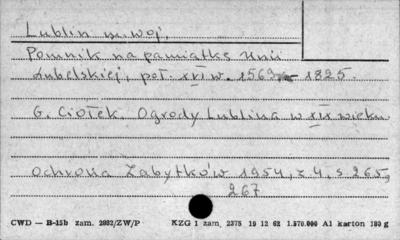 Lublin m. woj.
Pomnik na pamiątkę Unii
Lubelskiej, poł. XVI w. 1569 – 1825.
G. Ciołek. Ogrody Lublina w XIX wieku
Ochrona Zabytków 1954, z. 4, s. 265,
267
CWD — B-15b zam. 2882/ZW/P KZG 1 zam. 2375 19 12 62 1.570.000 A1 karton 180 g